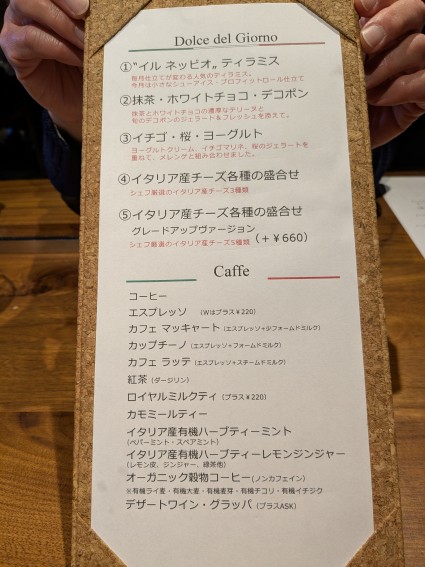 Dolce del Giorno
①"イル ネッビオ„ ティラミス
毎月仕立てが変わる人気のティラミス。
今月は小さなシューアイス・プロフィットロール仕立て
②抹茶・ホワイトチョコ・デコポン
抹茶とホワイトチョコの濃厚なテリーヌと
旬のデコポンのジェラート＆フレッシュを添えて。
③イチゴ・桜・ヨーグルト
ヨーグルトクリーム、イチゴマリネ、桜のジェラートを
重ねて、メレンゲと組み合わせました。
④イタリア産チーズ各種の盛合せ
シェフ厳選のイタリア産チーズ3種類
⑤イタリア産チーズ各種の盛合せ
グレードアップヴァージョン
シェフ厳選のイタリア産チーズ5種類 (＋￥660)
Caffe
コーヒー
エスプレッソ (Wはプラス￥220)
カフェ マッキャート (エスプレッソ+少フォームドミルク)
カップチーノ (エスプレッソ+フォームドミルク)
カフェ ラッテ (エスプレッソ+スチームドミルク)
紅茶 (ダージリン)
ロイヤルミルクティ (プラス￥220)
カモミールティー
イタリア産有機ハーブティーミント
(ペパーミント・スペアミント)
イタリア産有機ハーブティーレモンジンジャー
(レモン皮、ジンジャー、緑茶他)
オーガニック穀物コーヒー(ノンカフェイン)
※有機ライ麦・有機大麦・有機麦芽・有機チコリ・有機イチジク
デザートワイン・グラッパ (プラスASK)